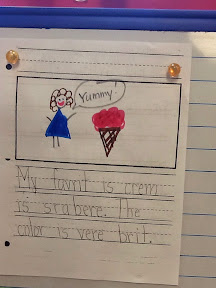 Yummy!
My favrit is crem
is srabere. The
color is vere brit.